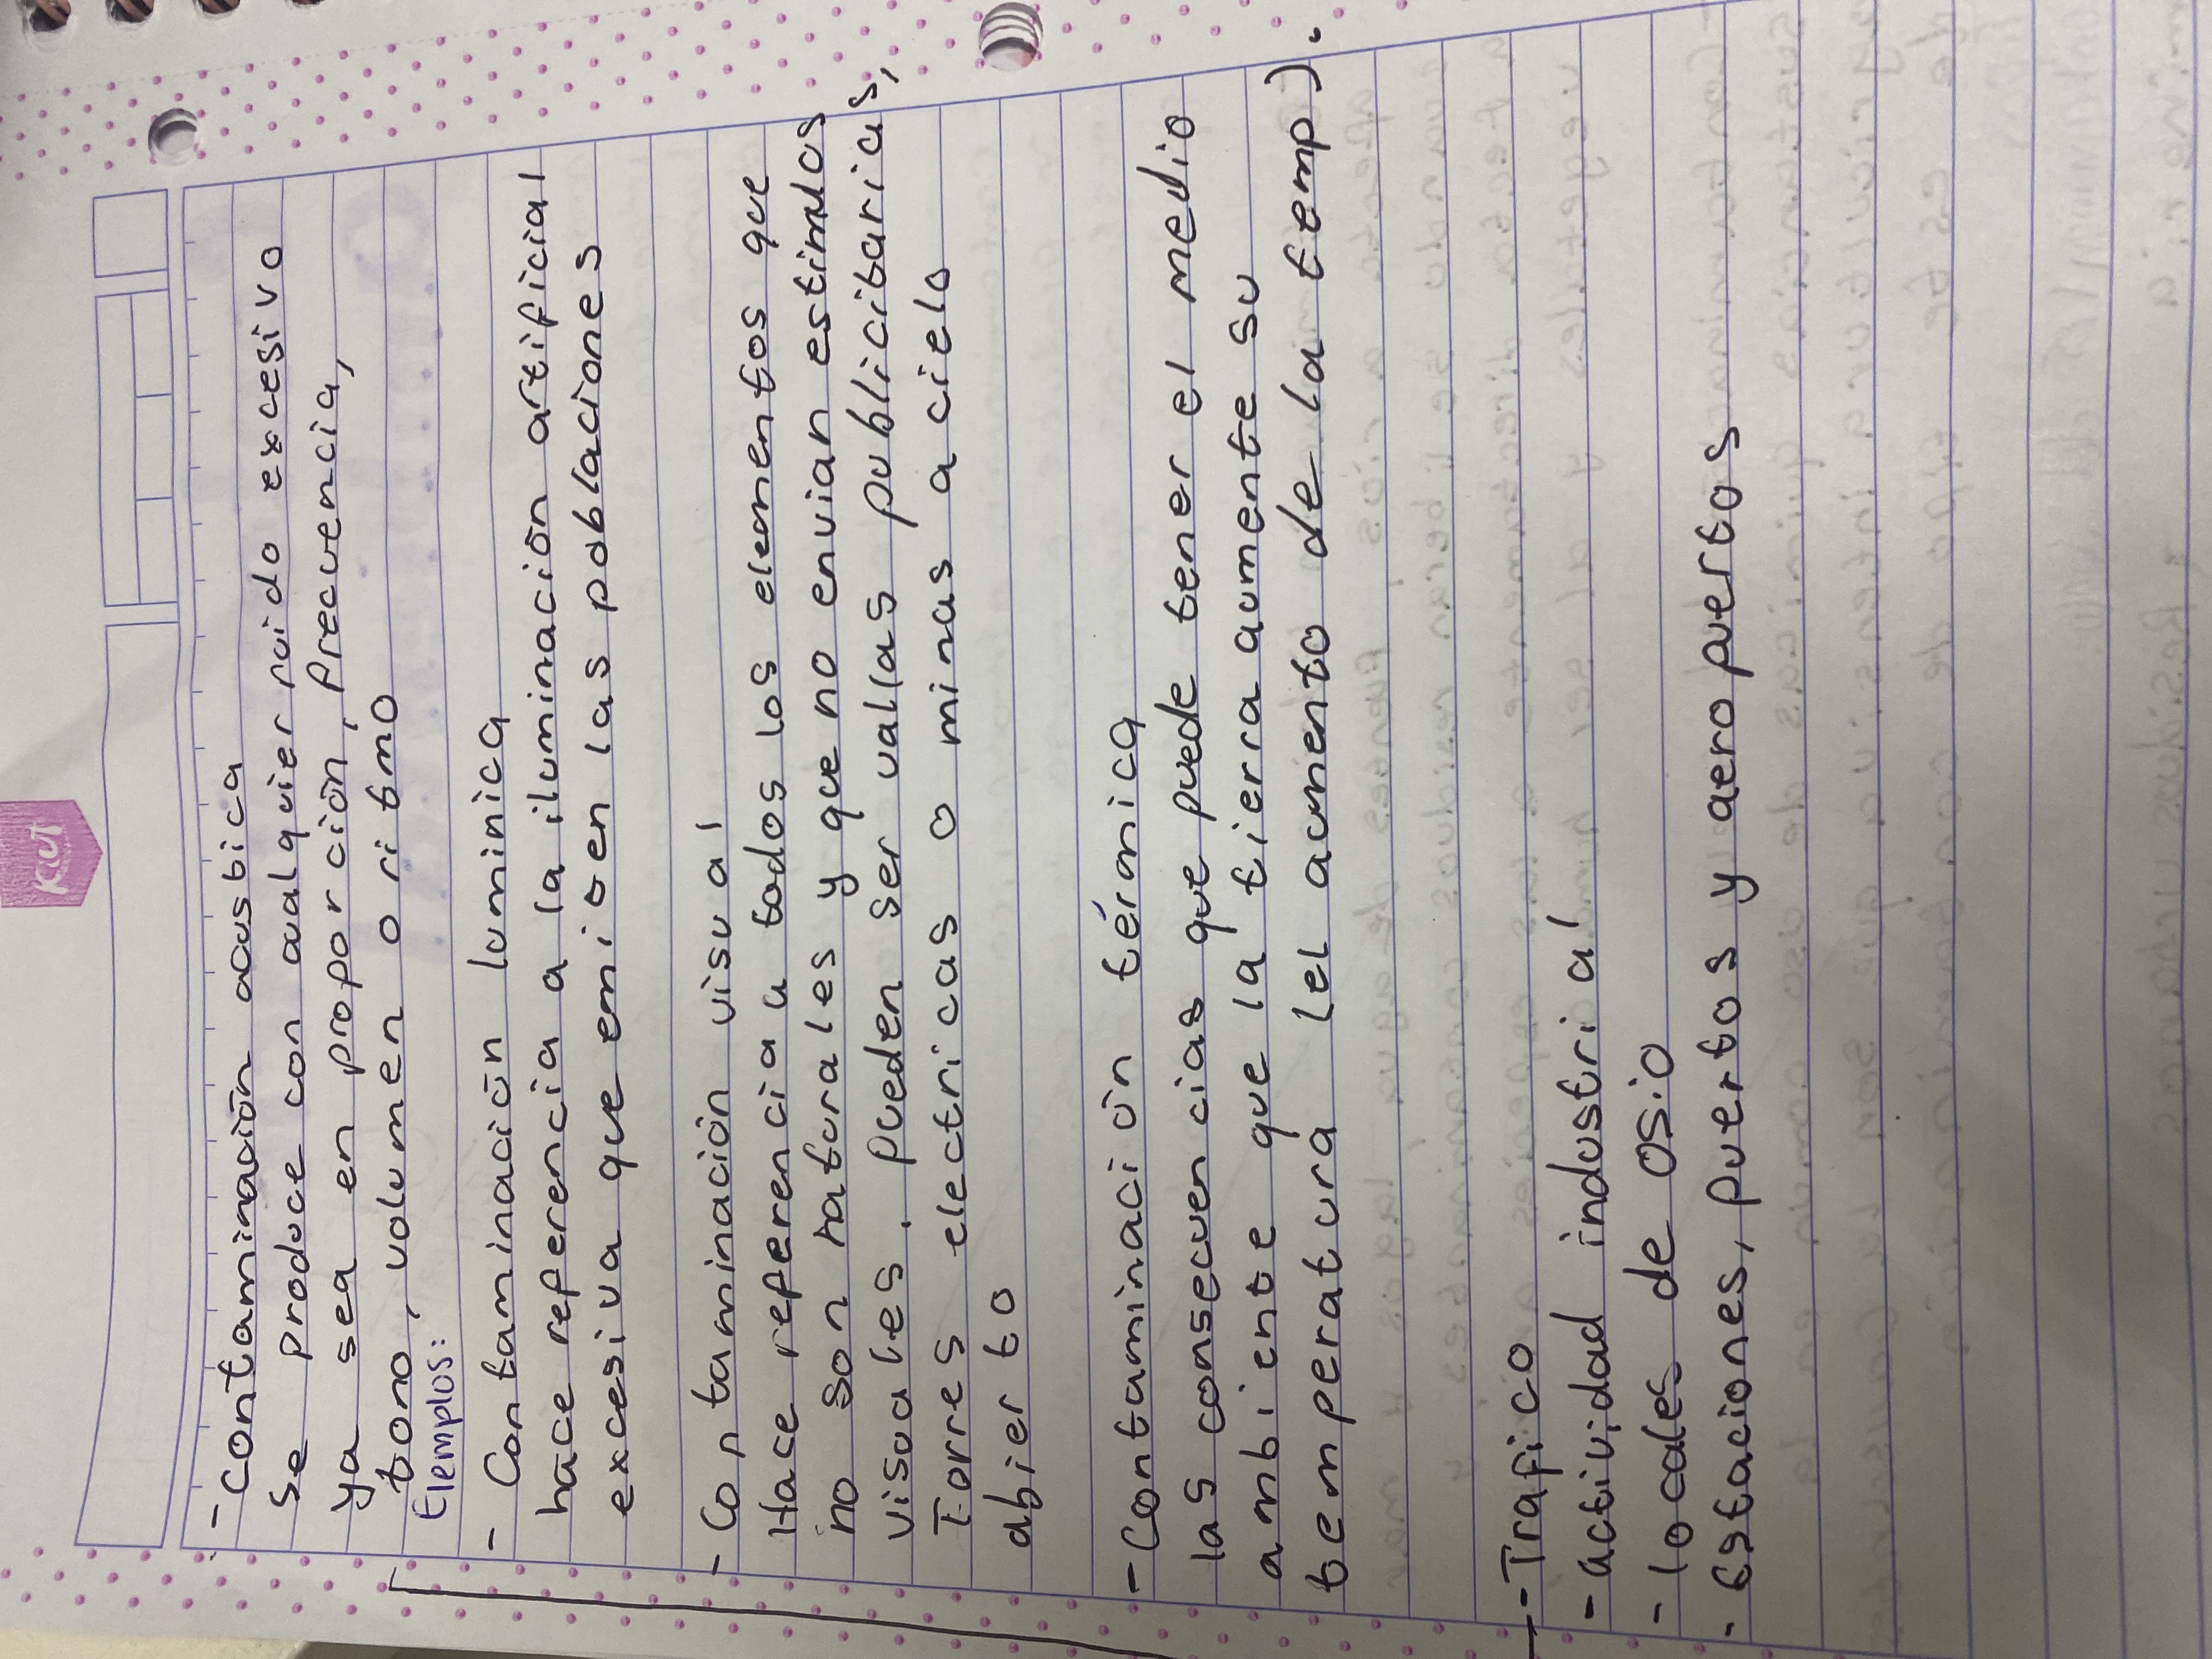 KUT
- Contaminación acustica
se produce con cualquier ruido excesivo
ya sea en proporción, frecuencia,
tono, volumen o ritmo
Ejemplos:
- Contaminación luminica
hace referencia a la iluminación artificial
excesiva que emiten las poblaciones
- Contaminación visual
Hace referencia a todos los elementos que
no son naturales y que no envian estimulos
visuales. pueden ser vallas publicitarias,
Torres electricas o minas a cielo
abierto
- Contaminación térmica
las consecuencias que puede tener el medio
ambiente que la tierra aumente su
temperatura (el aumento de la temp).
- Trafico
- actividad industrial
- locales de osio
- Estaciones, puertos y aeropuertos